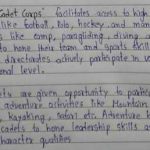 Cadet Corps" facilitates access to high
like football, Polo, hockey, and many
like camp, paragliding, diving
to hone their team and sports skill
directorates actively participate in
onal level.
are given opportunity to partic
adventure activities like Mountain
kayaking, Safari etc. Adventure
cadets to hone leadership skills a
character qualities